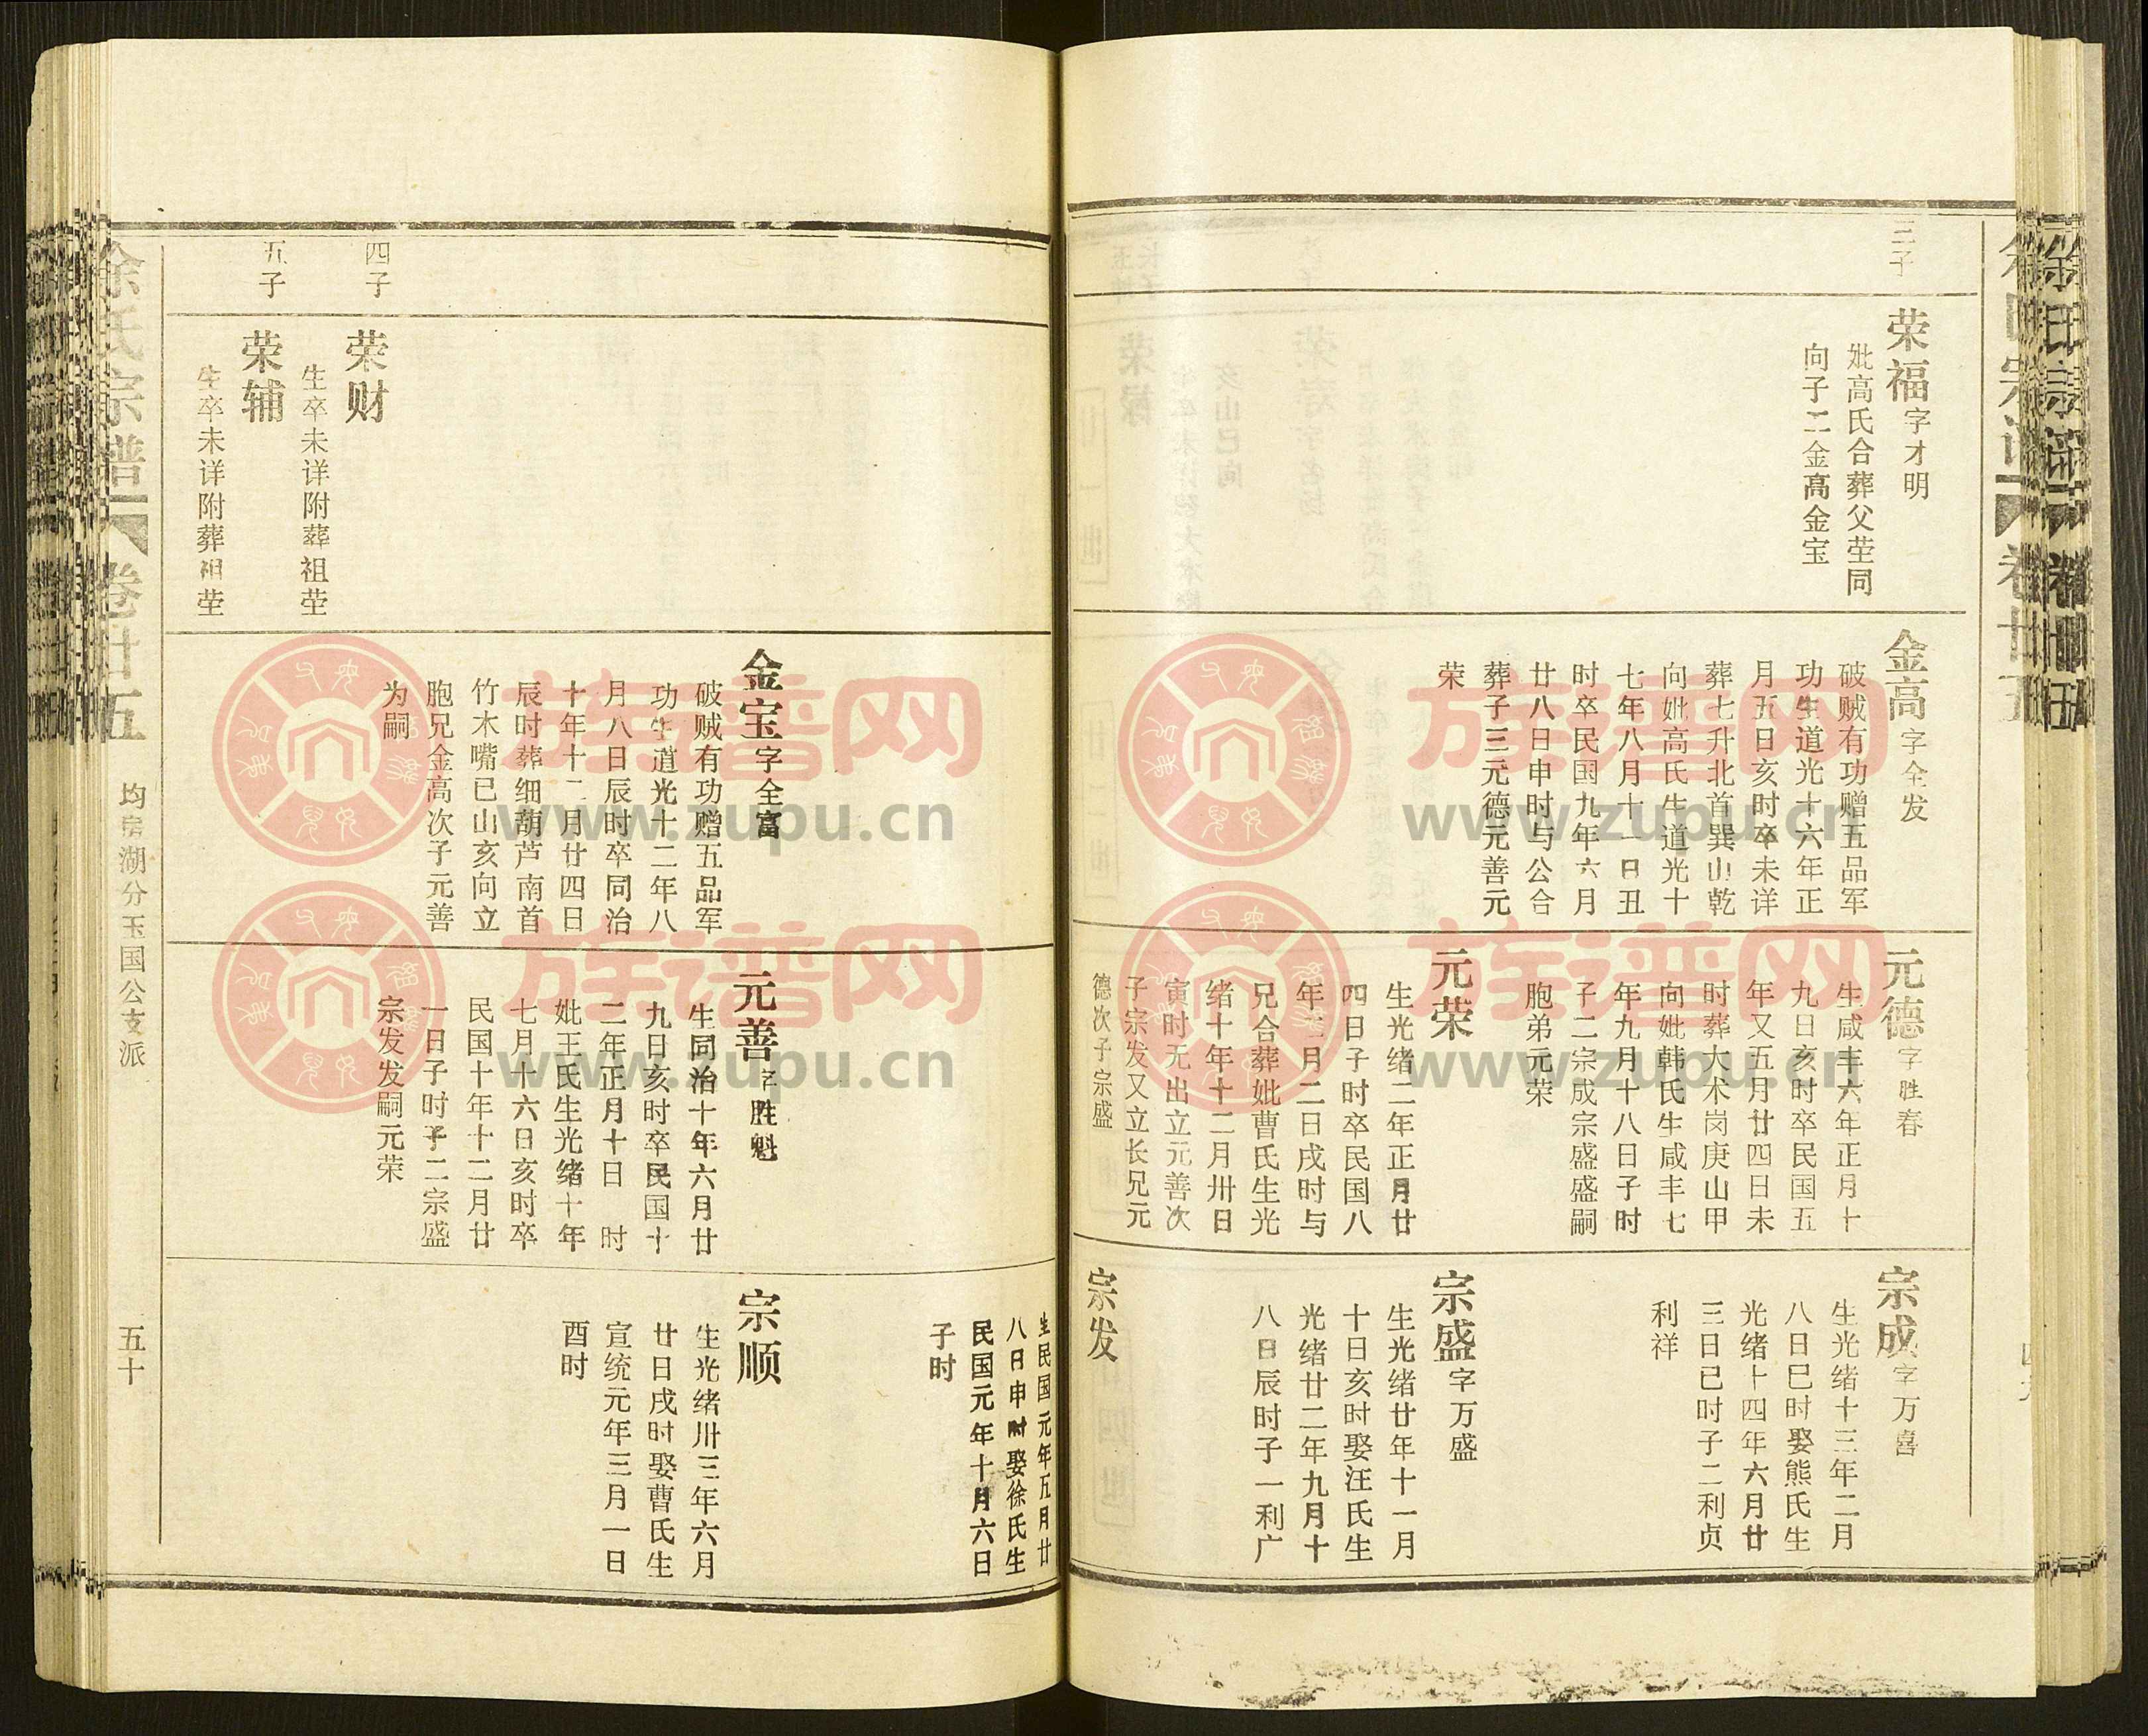 三子
荣福字才明
妣高氏合葬父茔同
向子二金高金宝
金高字全发
破贼有功赠五品军
功生道光十六年正
月五日亥时卒未详
葬七升北首巽山乾
向妣高氏生道光十
七年八月十一日丑
时卒民国九年六月
廿八日申时与公合
葬子三元德元善元
荣
元德字胜春
生咸丰六年正月十
九日亥时卒民国五
年又五月廿四日未
时葬大术岗庚山甲
向妣韩氏生咸丰七
年九月十八日子时
子二宗成宗盛盛嗣
胞弟元荣
元荣
生光绪二年正月廿
四日子时卒民国八
年二月二日戌时与
兄合葬妣曹氏生光
绪十年十二月卅日
寅时无出立元善次
子宗发又立长兄元
德次子宗盛
宗成字万喜
生光绪十三年二月
八日巳时娶熊氏生
光绪十四年六月廿
三日巳时子二利贞
利祥
宗盛字万盛
生光绪廿年十一月
十日亥时娶汪氏生
光绪廿二年九月十
八日辰时子一利广
宗发
生民国元年五月廿
八日申时娶徐氏生
民国元年十月六日
子时
四子
荣财
生卒未详附葬祖茔
五子
荣辅
生卒未详附葬祖茔
金宝字全富
破贼有功赠五品军
功生道光十二年八
月八日辰时卒同治
十年十二月廿四日
辰时葬细葫芦南首
竹木嘴巳山亥向立
胞兄金高次子元善
为嗣
元善字胜魁
生同治十年六月廿
九日亥时卒民国十
二年正月十日 时
妣王氏生光绪十年
七月十六日亥时卒
民国十年十二月廿
一日子时子二宗盛
宗发发嗣元荣
宗顺
生光绪卅三年六月
廿日戌时娶曹氏生
宣统元年三月一日
酉时
徐氏宗谱 卷廿五
均房湖分玉国公支派
五十
族谱网
www.zupu.cn
族谱网
www.zupu.cn
族谱网
www.zupu.cn
族谱网
www.zupu.cn